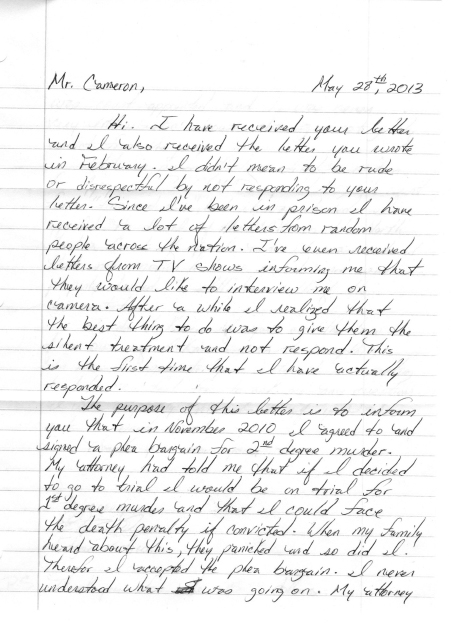 Mr. Cameron,
May 28th, 2013
Hi. I have received your letter
and I also received the letter you wrote
in February. I didn't mean to be rude
or disrespectful by not responding to your
letter. Since I've been in prison I have
received a lot of letters from random
people across the nation. I've even received
letters from TV shows informing me that
they would like to interview me on
camera. After a while I realized that
the best thing to do was to give them the
silent treatment and not respond. This
is the first time that I have actually
responded.
The purpose of this letter is to inform
you that in November 2010 I agreed to and
signed a plea bargain for 2nd degree murder.
My attorney had told me that if I decided
to go to trial I would be on trial for
1st degree murder and that I could face
the death penalty if convicted. When my family
heard about this, they panicked and so did I.
Therefor I accepted the plea bargain. I never
understood what was going on. My attorney